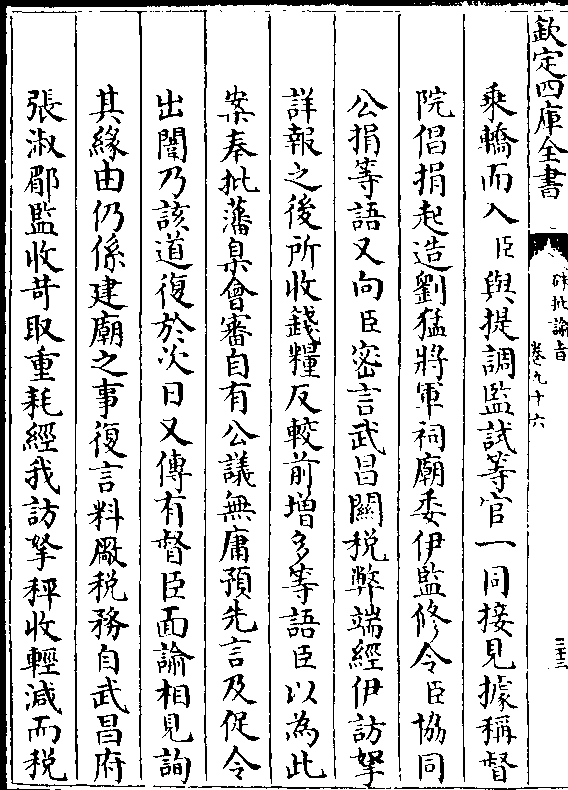 欽定四庫全書
硃批諭旨
卷九十六
三十三
乘轎而入臣與提調監試等官一同接見據稱督
院倡捐起造劉猛將軍祠廟委伊監修令臣協同
公捐等語又向臣密言武昌關稅弊端經伊訪拏
詳報之後所收錢糧反較前增多等語臣以為此
案奉批藩臬會審自有公議無庸預先言及促令
出闈乃該道復於次日又傳有督臣面諭相見詢
其緣由仍係建廟之事復言料廠稅務自武昌府
張淑郿監收苛取重耗經我訪拏秤收輕減而稅